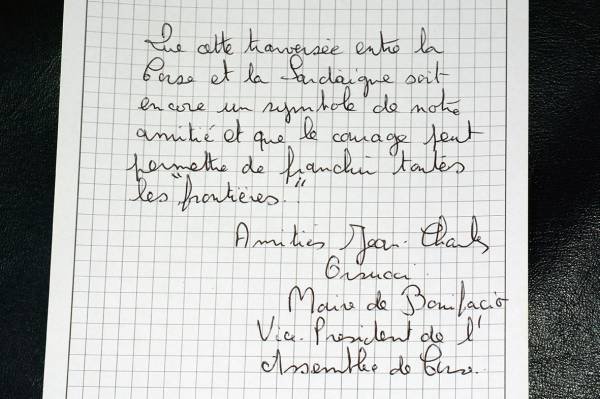 Que cette traversée entre la
Corse et la Sardaigne soit
encore un symbole de notre
amitié et que le courage peut
permettre de franchir toutes
les "frontières."
Amitiés Jean-Charles
Orsucci
Maire de Bonifacio
Vice-Président de l'
Assemblée de Corse.